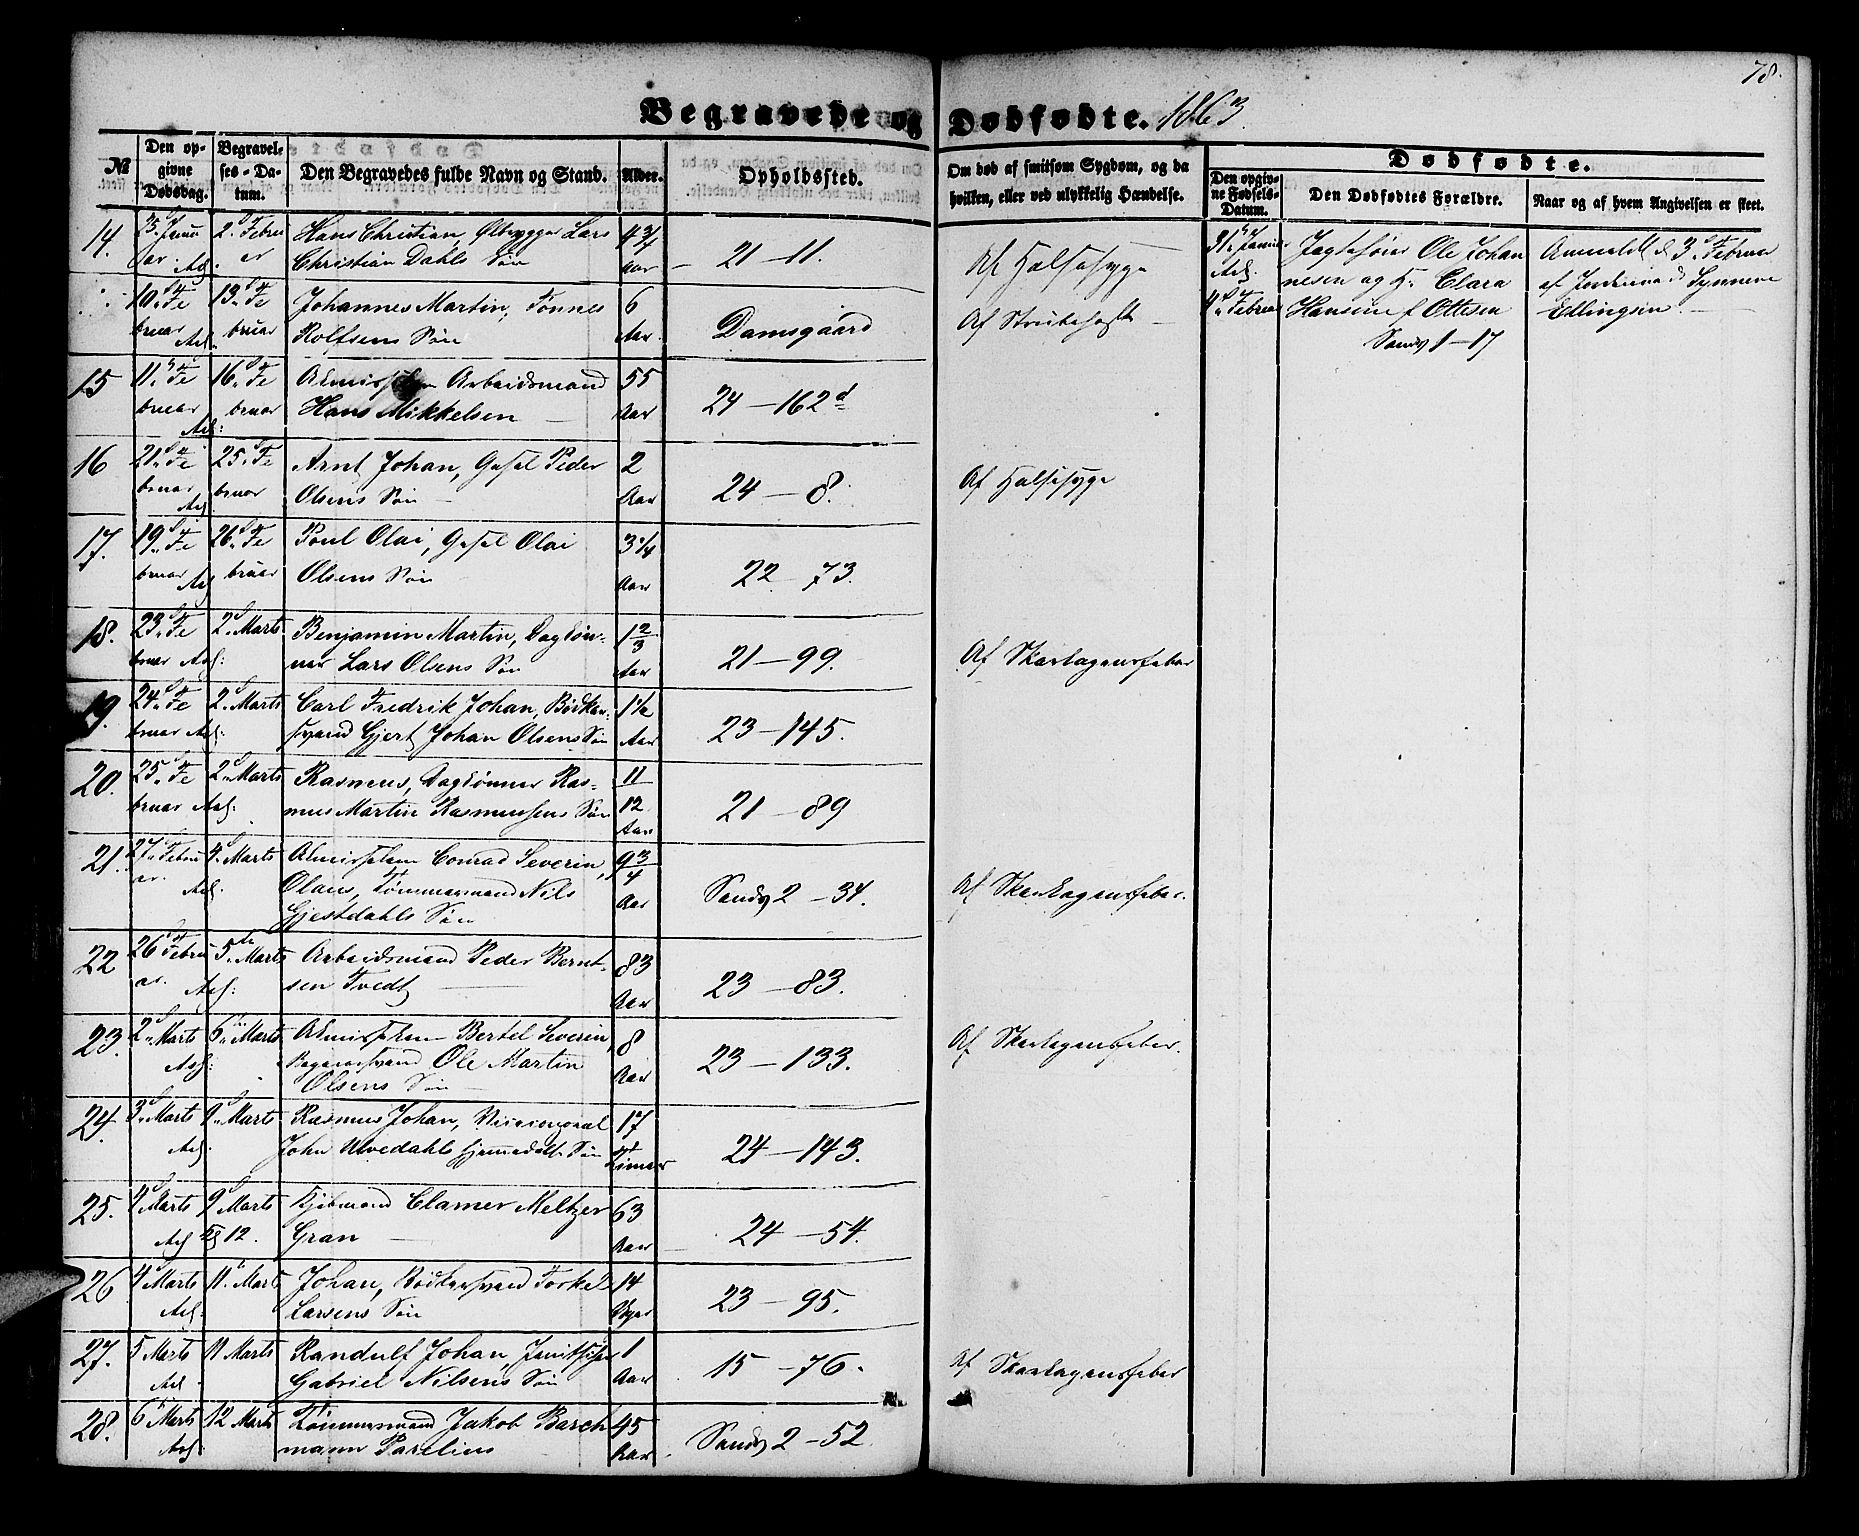 78.
Begravede og Dødfødte. 1863.
№
Den opgivne Dødsdag.
Begravelses-Datum.
Den Begravedes fulde Navn og Stand.
Alder.
Opholdssted.
Om død af smitsom Sygdom, og da hvilken, eller ved ulykkelig Hændelse.
Dødfødte.
Den opgivne Fødsels-Datum.
Den Dødfødtes Forældre.
Naar og af hvem Angivelsen er skeet.
14. 25 Januar 2. Februer Hans Christian, Ølbrygger Lars
Christian Dahls Søn 4 3/4 Aar 21-11. Af Halssyge
10. Februar 13. Februar Johannes Martin, Tønnes
Rolfsens Søn 6 Aar. Damsgaard Af Strubehoste
15 11. Februar 16. Februar Almisselem Arbeidsmand
Hans Mikkelsen 55 Aar 24-162d
16 21. Februar 25. Februar Arnt Johan, Gesel Peder
Olsens Søn 2 Aar 24-8. Af Halssyge
17. 19. Februar 26. Februar Poul Olai, Gesel Olai
Olsens Søn 3 1/4 Aar 22-73.
18. 23. Februar 2. Marts Benjamin Martin, Dagløn-
ner Lars Olsens Søn 1 2/3 Aar 21-99. Af Skarlagensfeber
19. 24. Februar 2. Marts Carl Fredrik Johan, Bødker-
svend Gjert Johan Olsens Søn 1 1/2 Aar 23-145.
20. 25. Februar 2. Marts Rasmus, Daglønner Ras-
mus Martin Rasmussens Søn 11/12 Aar 21-89
21. 27. Februar 4. Marts Almisselem Conrad Severin,
Olaus, Tømmermand Nils
Gjestdahls Søn 9 3/4 Aar Sandv 2-34. Af Skarlagensfeber.
22 26 Februar 5te Marts Arbeidsmand Peder Bernt-
sen Tvedt 83 Aar 23-83.
23. 2. Marts 6. Marts Almisselem Bertel Severin,
Bagersvend Ole Martin
Olsens Søn 8 Aar 23-133. Af Skarlagensfeber.
24. 3. Marts 9. Marts Rasmus Johan,
John Ulvedahls Søn 17 Timer 24-143.
25. 4 Marts 9 Marts Kl 12. Kjøbmand Clamer Meltzer
Gran 63 Aar 24-54.
26 4 Marts 11. Mart Johan, Bødkersvend Torkel
Larsens Søn 14 Uger 23-95.
27. 5 Marts 11 Marts Randulf Johan,
Gabriel Nilsens Søn 1 Aar 15-76. Af Skarlagensfeber
28. 6 Marts 12 Marts Tømmermand Jakob Barch
mann Parelius 45 Aar. Sandv 2-52.
31. Januar Jagtefører Ole Johan
nesen og H. Clara
Hansine f Ottesen
Sandv 1-17
4. Februar
Anmeldt d 3. Februar
af Jordemod. Synneve
Ellingsen.